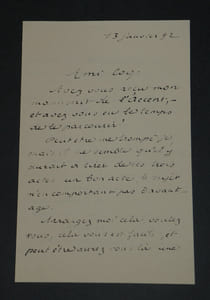 13 janvier 92
Ami Coq,
Avez vous reçu mon
manuscrit de l'accent,
et avez vous eu le temps
de le parcourir?
Peut être me trompé-je,
mais il me semble qu'il y
aurait à tirer de ces trois
actes un bon acte le sujet
n'en comportant pas d'avant-
age.
Arrangez moi cela voulez
vous, cela vous est facile et
peut être aurez vous là une